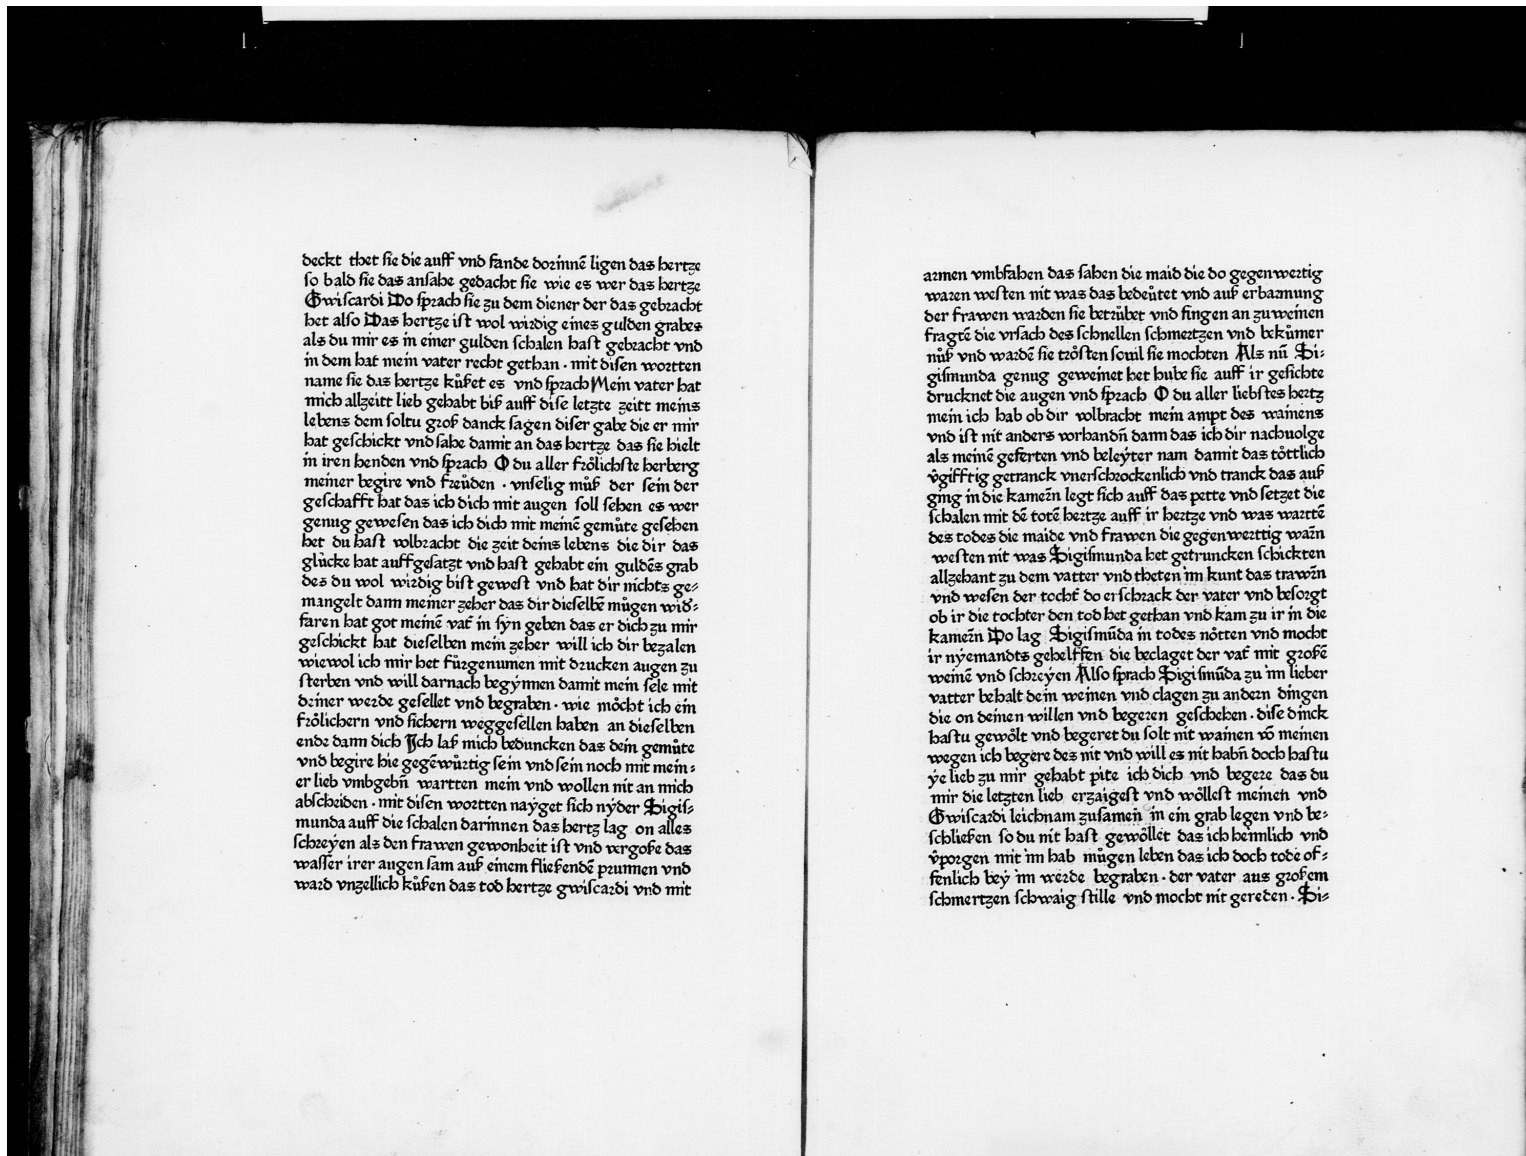 deckt thet sie die auff vnd fande dorinnē ligen das hertze
so bald sie das ansahe gedacht sie wie es wer das hertze
Gwiscardi Do sprach sie zu dem diener der das gebracht
het also Das hertze ist wol wirdig eines gulden grabes
als du mir es in einer gulden schalen hast gebracht vnd
in dem hat mein vater recht gethan · mit disen wortten
name sie das hertze kůßet es vnd sprach Mein vater hat
mich allzeitt lieb gehabt biß auff dise letzte zeitt meins
lebens dem soltu groß danck sagen diser gabe die er mir
hat geschickt vnd sahe damit an das hertze das sie hielt
in iren henden vnd sprach O du aller frőlichste herberg
meiner begire vnd freůden · vnselig můß der sein der
geschafft hat das ich dich mit augen soll sehen es wer
genug gewesen das ich dich mit meinē gemůte gesehen
het du hast volbracht die zeit deins lebens die dir das
glůcke hat auffgesatzt vnd hast gehabt ein guldēs grab
des du wol wirdig bist gewest vnd hat dir nichts ge⸗
mangelt dann meiner zeher das dir dieselbē můgen wid⸗
faren hat got meinē vat̄ in syn geben das er dich zu mir
geschickt hat dieselben mein zeher will ich dir bezalen
wiewol ich mir het fůrgenumen mit drucken augen zu
sterben vnd will darnach begÿnnen damit mein sele mit
deiner werde gesellet vnd begraben · wie mőcht ich ein
frőlichern vnd sichern weggesellen haben an dieselben
ende dann dich Ich laß mich beduncken das dein gemůte
vnd begire hie gegēwůrtig sein vnd sein noch mit mein⸗
er lieb vmbgebn̄ wartten mein vnd wollen nit an mich
abscheiden · mit disen wortten naÿget sich nÿder Sigis⸗
munda auff die schalen darinnen das hertz lag on alles
schreÿen als den frawen gewonheit ist vnd vergoße das
wasser irer augen sam auß einem fließendē prunnen vnd
ward vnzellich kůßen das tod hertze gwiscardi vnd mit
armen vmbfahen das sahen die maid die do gegenwertig
waren westen nit was das bedeůtet vnd auß erbarmung
der frawen warden sie betrůbet vnd fingen an zuweinen
fragtē die vrsach des schnellen schmertzen vnd bekůmer
nůß vnd wardē sie trősten souil sie mochten Als nū Si⸗
gismunda genug geweinet het hube sie auff ir gesichte
drucknet die augen vnd sprach O du aller liebstes hertz
mein ich hab ob dir volbracht mein ampt des wainens
vnd ist nit anders vorhandn̄ dann das ich dir nachuolge
als meinē geferten vnd beleÿter nam damit das tőttlich
v̄gifftig getranck vnerschrockenlich vnd tranck das auß
ging in die kamern̄ legt sich auff das pette vnd setzet die
schalen mit dē totē hertze auff ir hertze vnd was warttē
des todes die maide vnd frawen die gegenwerttig warn̄
westen nit was Sigismunda het getruncken schickten
allzehant zu dem vatter vnd theten im kunt das trawrn̄
vnd wesen der tocht̄ do erschrack der vater vnd besorgt
ob ir die tochter den tod het gethan vnd kam zu ir in die
kamern̄ Do lag Sigismūda in todes nőtten vnd mocht
ir nÿemandts gehelffen die beclaget der vat̄ mit großē
weinē vnd schreÿen Also sprach Sigismūda zu im lieber
vatter behalt dein weinen vnd clagen zu andern dingen
die on deinen willen vnd begeren geschehen · dise dinck
hastu gewőlt vnd begeret du solt nit wainen vō meinen
wegen ich begere des nit vnd will es nit habn̄ doch hastu
ÿe lieb zu mir gehabt pite ich dich vnd begere das du
mir die letzten lieb erzaigest vnd wőllest meinen vnd
Gwiscardi leichnam zusamen in ein grab legen vnd be⸗
schließen so du nit hast gewőllet das ich heimlich vnd
v̄porgen mit im hab můgen leben das ich doch tode of⸗
fenlich beÿ im werde begraben · der vater aus großem
schmertzen schwaig stille vnd mocht nit gereden · Si⸗